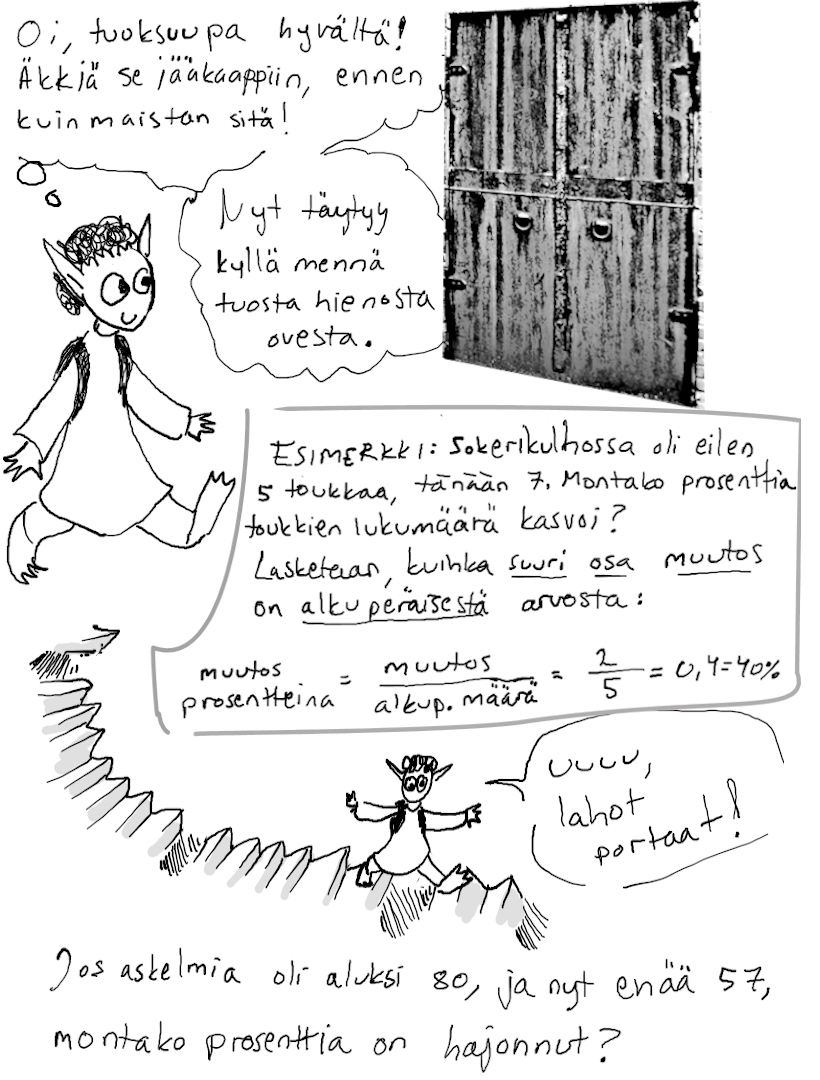 Oi, tuoksuupa hyvältä!
Äkkiä se jääkaappiin, ennen
kuin maistan sitä!
Nyt täytyy
kyllä mennä
tuosta hienosta
ovesta.
ESIMERKKI: Sokerikulhossa oli eilen
5 toukkaa, tänään 7. Montako prosenttia
toukkien lukumäärä kasvoi?
Lasketaan, kuinka suuri osa muutos
on alkuperäisestä arvosta:
muutos
prosentteina = muutos / alkup. määrä = 2/5 = 0,4=40%
uuuu,
lahot
portaat!
Jos askelmia oli aluksi 80, ja nyt enää 57,
montako prosenttia on hajonnut?